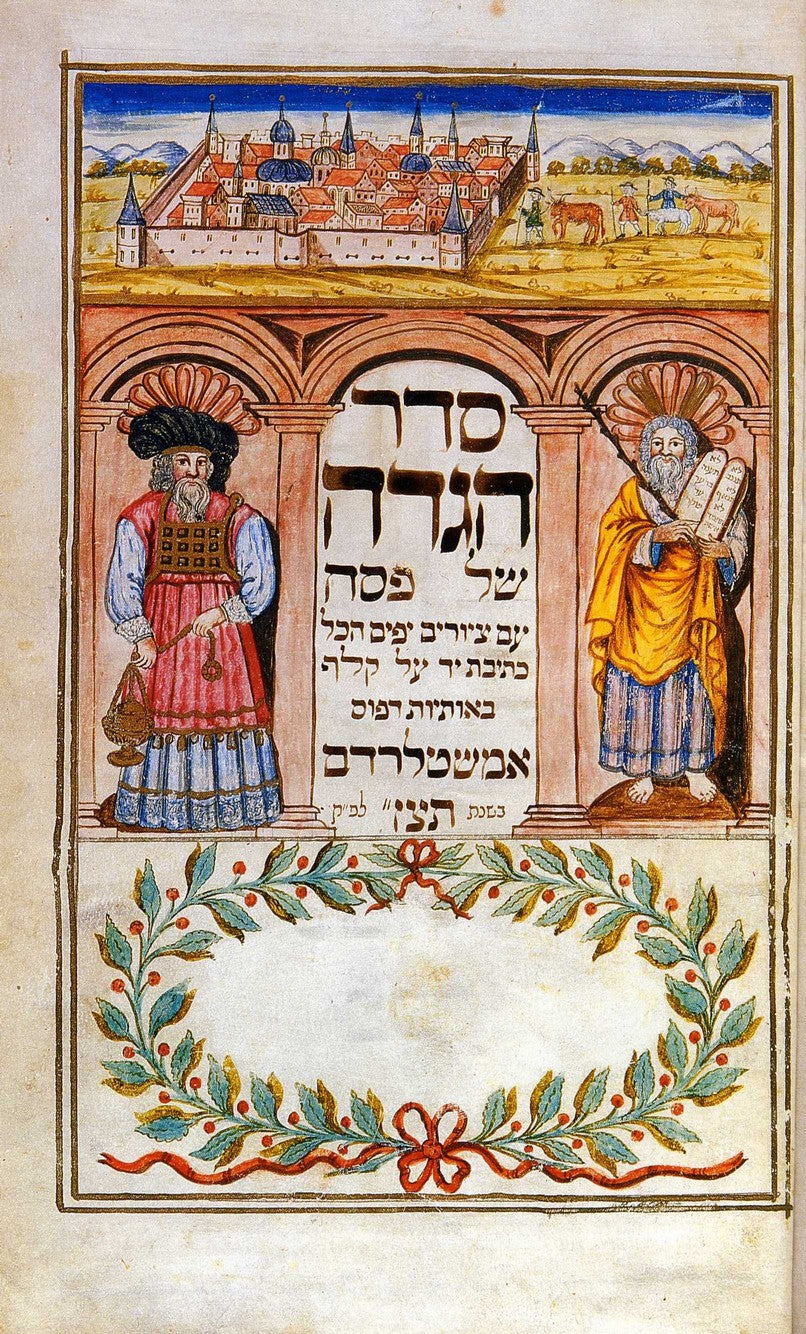 סדר
הגדה
של פסח
עם ציורים יפים הכל
כתיבת יד על קלף
באותיות דפוס
אמשטלרדם
בשנת לפ״ק